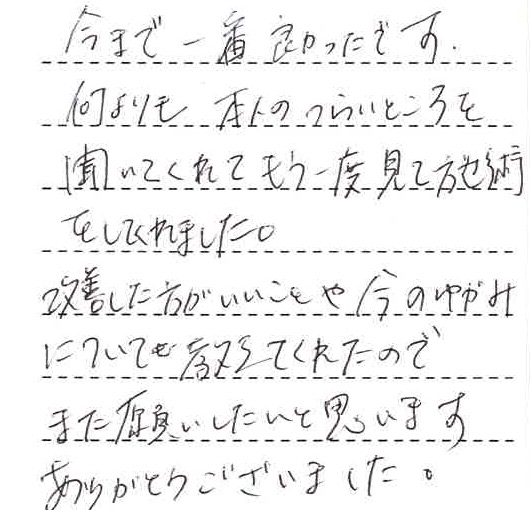 今まで一番良かったです.
何よりも 本人のつらいところを
聞いてくれてもう一度見て施術
をしてくれました。
改善した方がいいことや今のゆがみ
についても教えてくれたので
また願いしたいと思います
ありがとうございました。